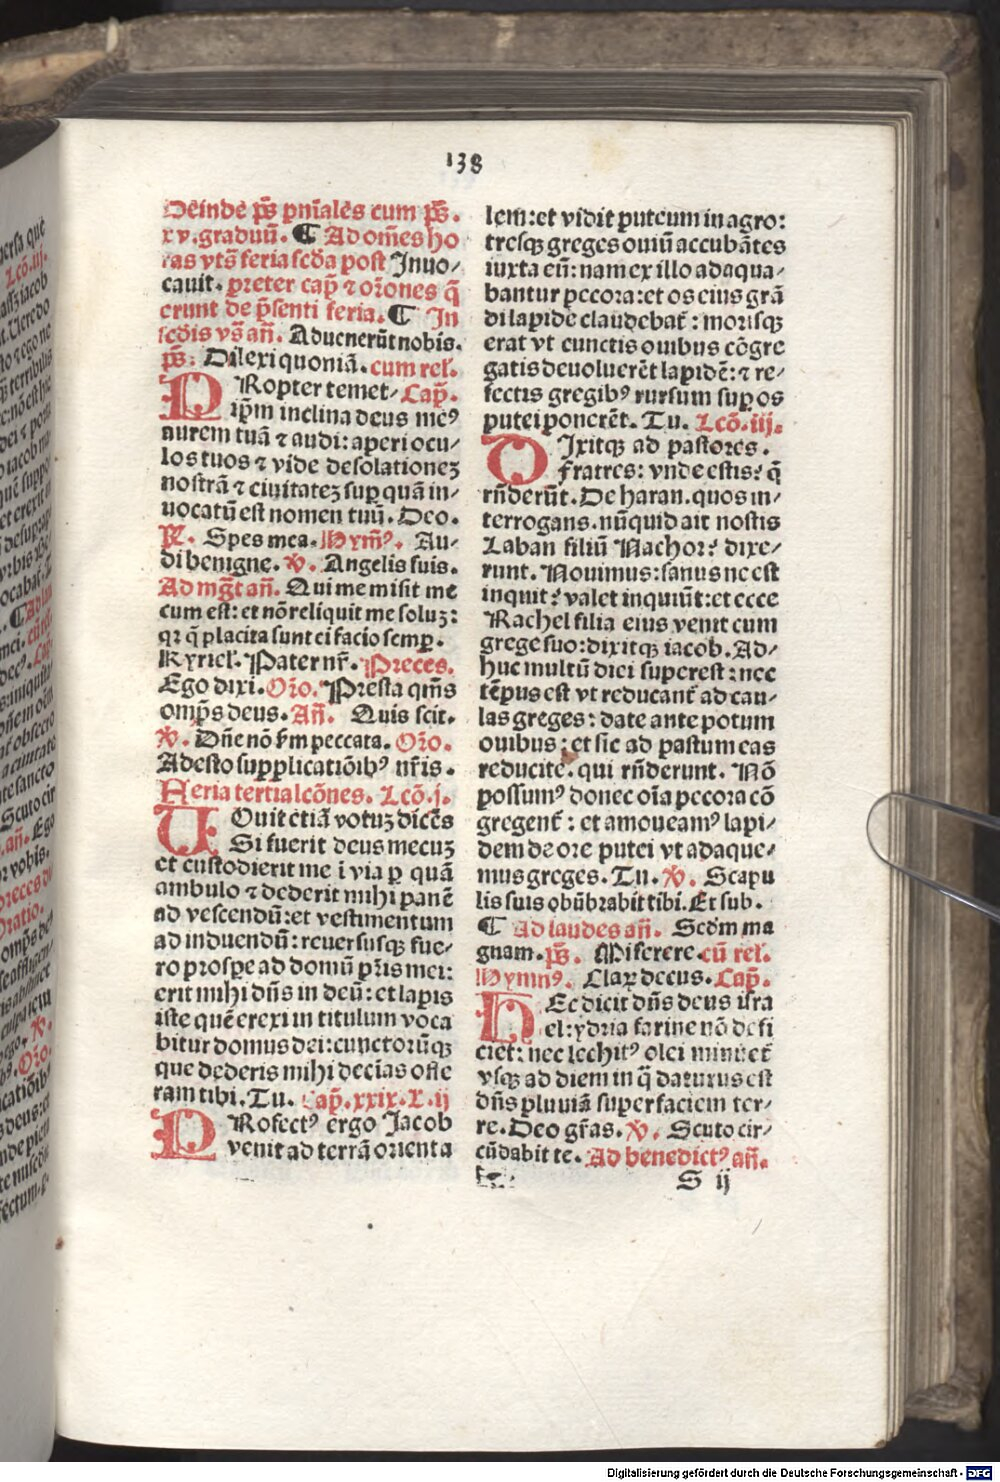 138
Deinde ps̄ pn̄iales cum ps̄.
xv.graduū. ¶ Ad om̄es ho
ras vts̄ feria scd̄a post Inuo/
cauit. preter cap̄ ⁊ or̄ones q̄
erunt de p̄senti feria. ¶ In
scd̄is vs̄ añ. Aduenerūt nobis.
ps̄. Dilexi quoniā. cum rel̄.
PRopter temet/ Cap̄.
ip̄m inclina deus me⁹
aurem tuā ⁊ audi: aperi ocu/
los tuos ⁊ vide desolationeꝫ
nostrā ⁊ ciuitateꝫ suꝑ quā in/
uocatū est nomen tuū. Deo.
R̄. Spes mea. Hym̄⁹. Au/
di benigne. v̄. Angelis suis.
Ad mgt̄ añ. Qui me misit me
cum est: et nō reliquit me soluꝫ:
qꝛ q̄ placita sunt ei facio semꝑ.
Kyriel̄. Pater nr̄. Preces.
Ego dixi. Or̄o. Presta qm̄s
omp̄s deus. Añ. Quis scit.
v̄. Dn̄e nō f̄m peccata. Or̄o.
Adesto supplicatiōib⁹ nr̄is.
Feria tertia lcōnes. Lcō.j.
VOuit etiā votuꝫ dicēs
Si fuerit deus mecuꝫ
et custodierit me ī via ꝑ quā
ambulo ⁊ dederit mihi panē
ad vescendū: et vestimentum
ad induendū: reuersusqꝫ fue/
ro prospe ad domū pr̄is mei:
erit mihi dn̄s in deū: et lapis
iste quē erexi in titulum voca
bitur domus dei: cunctorūqꝫ
que dederis mihi decīas offe
ram tibi. Tu. Cap̄.xxix.L.ij
PRofect⁹ ergo Jacob
venit ad terrā orienta
lem: et vidit puteum in agro:
tresqꝫ greges ouiū accubātes
iuxta eū: nam ex illo adaqua/
bantur pecora: et os eius grā
di lapide claudebat̄: morisqꝫ
erat vt cunctis ouibus cōgre
gatis deuoluerēt lapidē: ⁊ re/
fectis gregib⁹ rursum suꝑ os
putei ponerēt. Tu. Lcō.iij.
DIxitqꝫ ad pastores.
Fratres: vnde estis? q̄
rn̄derūt. De haran. quos in/
terrogans. nūquid ait nostis
Laban filiū Nachor? dixe/
runt. Nouimus: sanus ne est
inquit? valet inquiūt: et ecce
Rachel filia eius venit cum
grege suo: dixitqꝫ iacob. Ad/
huc multū diei superest: nec
tēpus est vt reducant̄ ad cau/
las greges: date ante potum
ouibus: et sic ad pastum eas
reducite. qui rn̄derunt. Nō
possum⁹ donec oīa pecora cō
gregent̄: et amoueam⁹ lapi/
dem de ore putei vt adaque/
mus greges. Tu. v̄. Scapu
lis suis obūbrabit tibi. Et sub.
¶ Ad laudes añ. Scd̄m ma
gnam. ps̄. Miserere. cū rel̄.
Hymn⁹. Claꝝ decus. Cap̄.
HEc dicit dn̄s deus isra
el: ydria farine nō defi
ciet: nec lechit⁹ olei minuet̄
vsqꝫ ad diem in q̄ daturus est
dn̄s pluuiā super faciem ter/
re. Deo gr̄as. v̄. Scuto cir/
cūdabit te. Ad benedict⁹ añ.
S ij
Digitalisierung gefördert durch die Deutsche Forschungsgemeinschaft - DFG